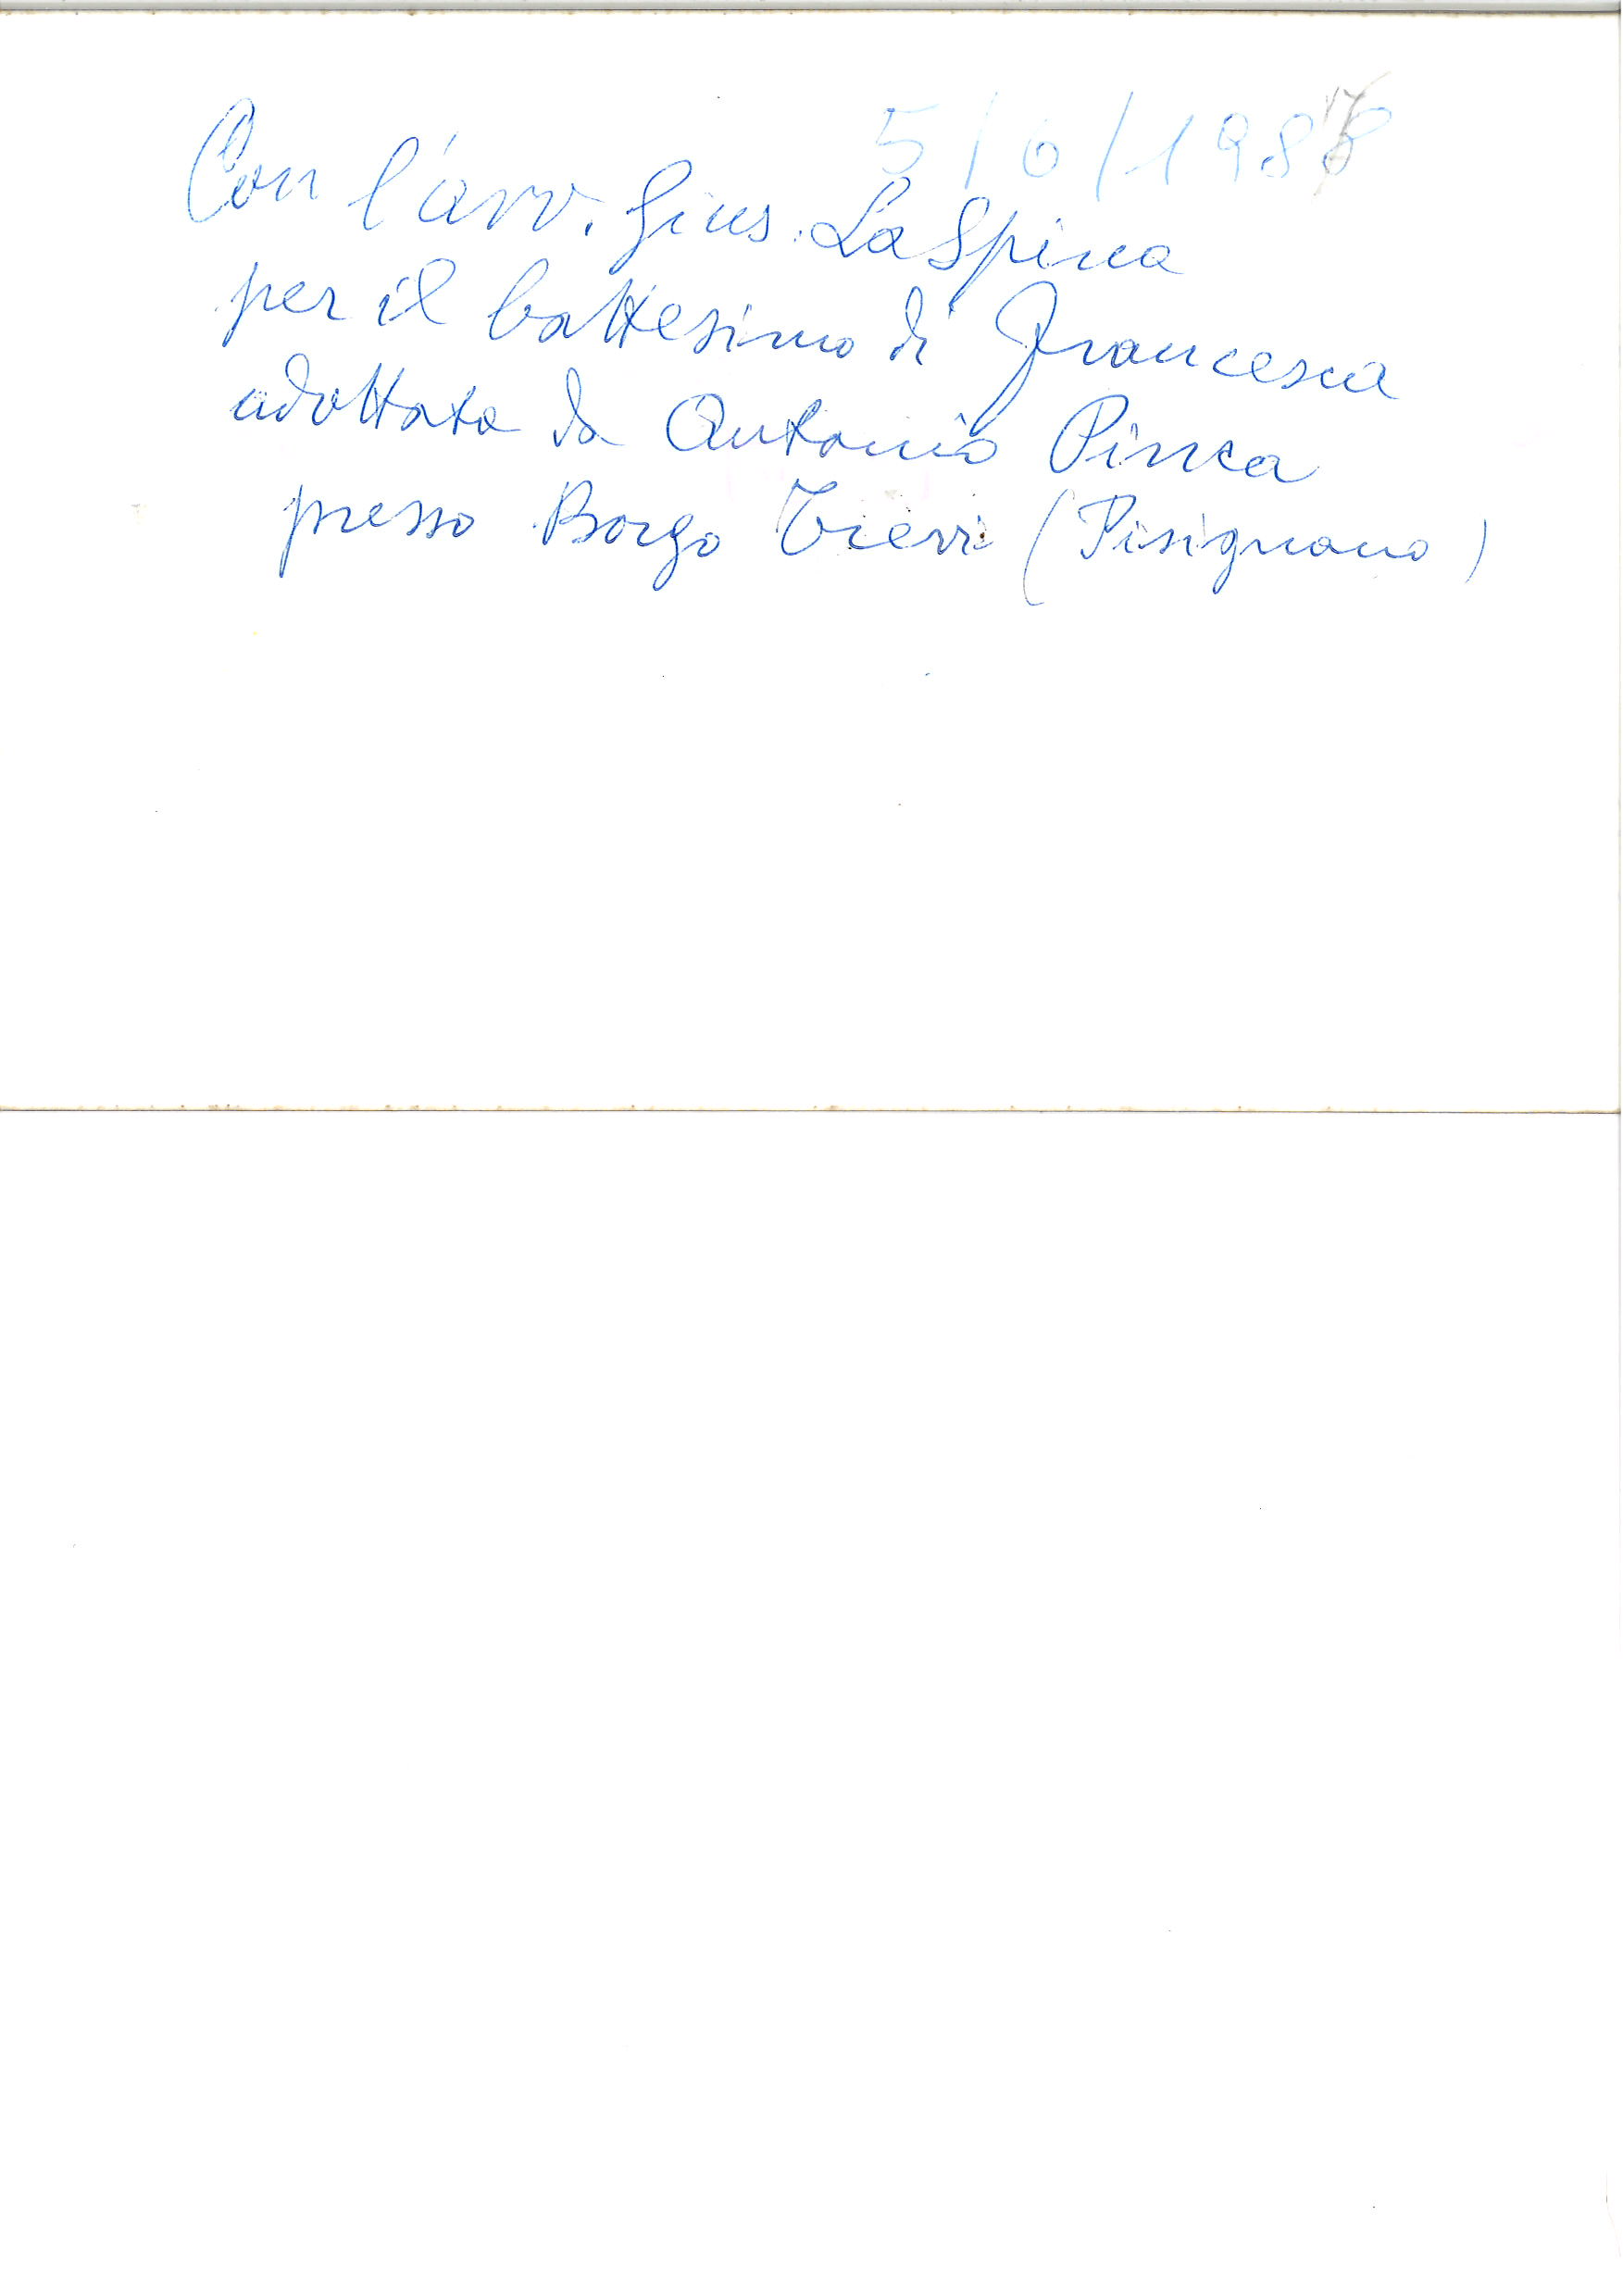 5/6/1987
Con l'avv. Gius. La Spina
per il battesimo di Francesca
adottata da Antonio Pinca
presso Borgo (Pisignano)